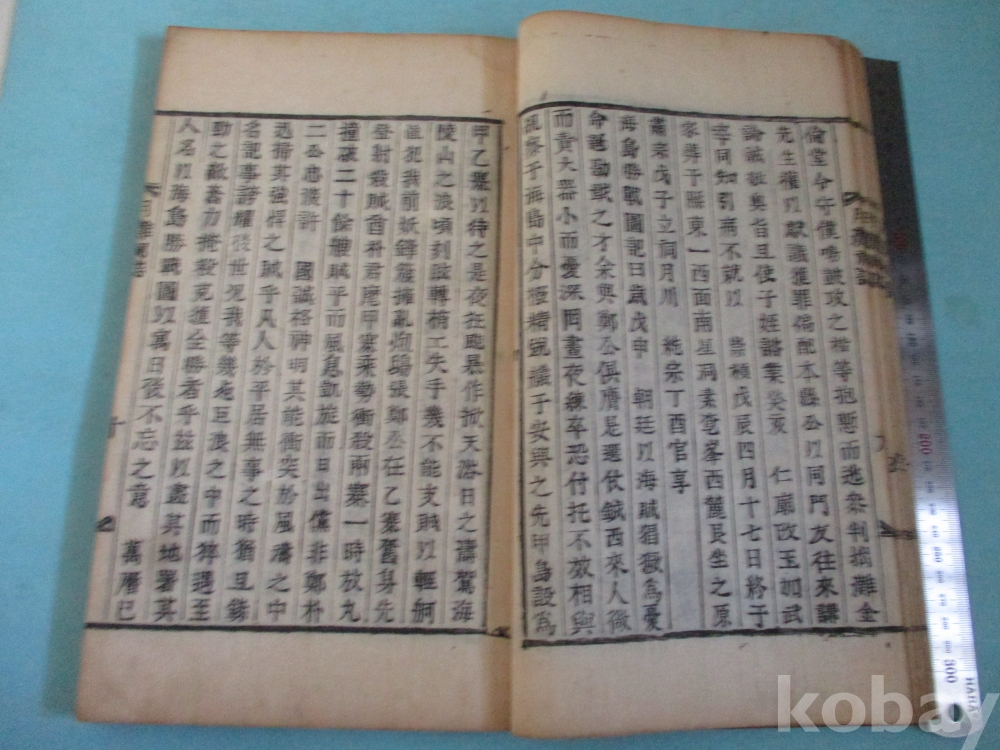 倫堂今守僕嗚鼓攻之楷等抱慙而逃參判摘難金
先生權以獻議獲罪備配本縣公以同門友往來講
論誠敬奧旨且使子姪諮業癸亥 仁廟改玉加武
字同知引病不就以 崇禎戊辰四月十七日終于
家葬于縣東一西面南星洞素耄峯西麓艮坐之原
肅宗戊子立祠月川 純宗丁酉官享
海島勝戰圖記曰歲戊申 朝廷以海賊猖獗為憂
命選勤戰之才余與鄭公俱膺是選仗鉞西來人微
而責大器小而憂深同晝夜練卒恐付托不效相與
祭于海島中分極精觇 于安興之先甲島設為
甲乙寨以待之是夜狂颷暴作掀天浴日之濤駕海
陵山之浪頃刻 轉梢工失手幾不能支賊以輕舸
犯我前妖鋒簇擁亂炮鴟張鄭公在乙寨奮身先
登射殺賊酋朴君麾甲寨乘勢衝殺兩寨一時放丸
撞破二十餘艘賊乎而風息凱旋而日出儻非鄭朴
二公忠義許 國誠格神明其能衝突於風濤之中
迅掃其強悍之賊乎凡人於平居無事之時猶且錄
名記事誇耀後世况我等幾死巨浪之中而猝遇至
勁之敵 力掩殺克獲全勝者乎茲以畫其地署其
人名以海島勝戰圖以寓日後不忘之意 萬曆已
十
300
kobay